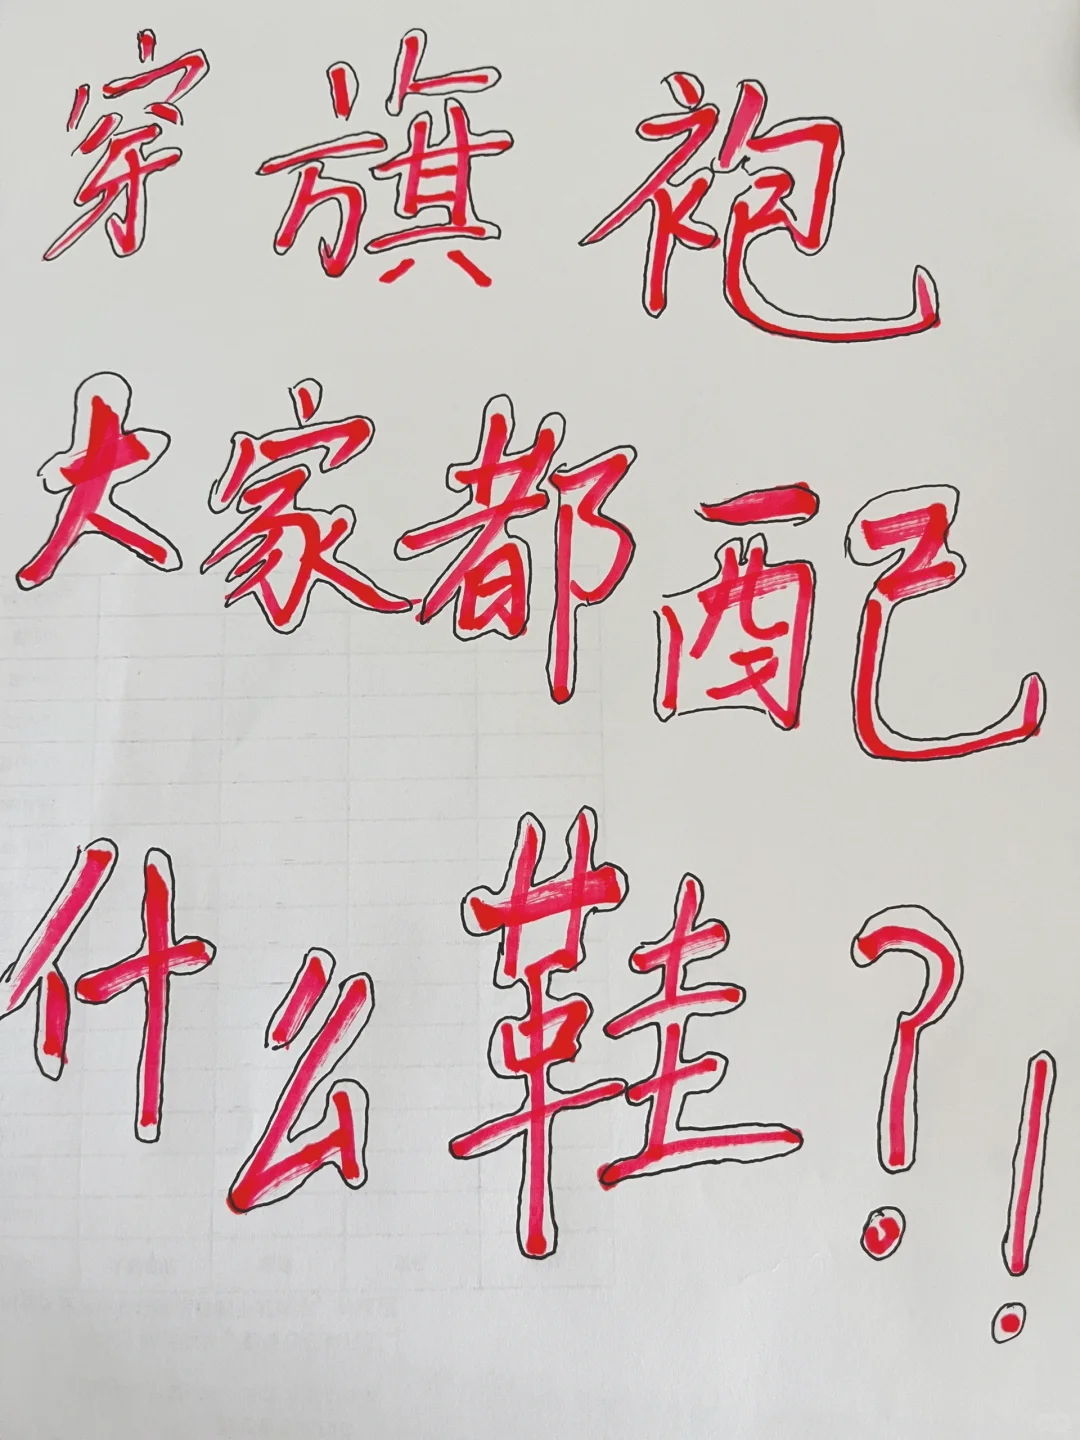 穿旗袍
大家都配
什么鞋?!